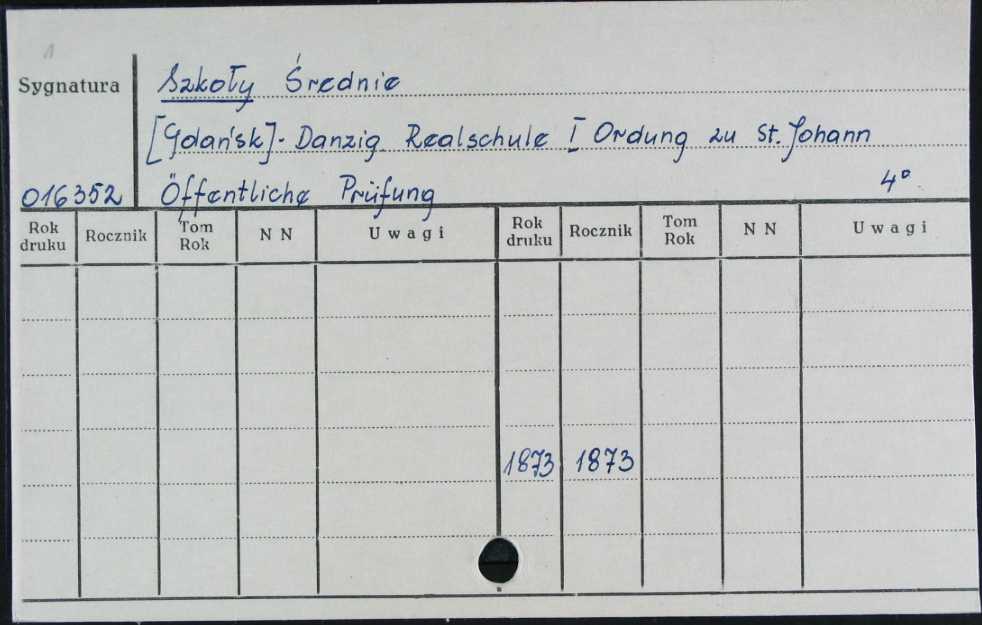 1
Sygnatura
Szkoły Średnie
[Gdańsk]- Danzig Realschule I Ordung zu St. Johann
016352
Öffentliche Prüfung
4°
Rok druku Rocznik Tom Rok N N Uwagi Rok druku Rocznik Tom Rok N N Uwagi
1873 1873